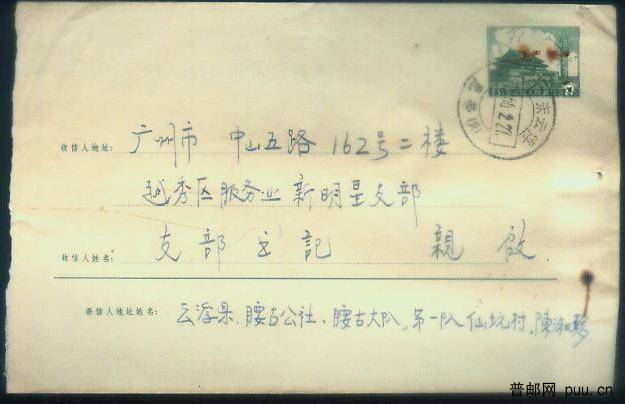 收信人地址: 广州市 中山五路 162号二楼
越秀区服务业新明星支部
收信人姓名: 支部书記 親啟
寄信人地址姓名: 云浮県、腰古公社、腰古大队,第一队仙坑村,陳
普邮网 puu.cn